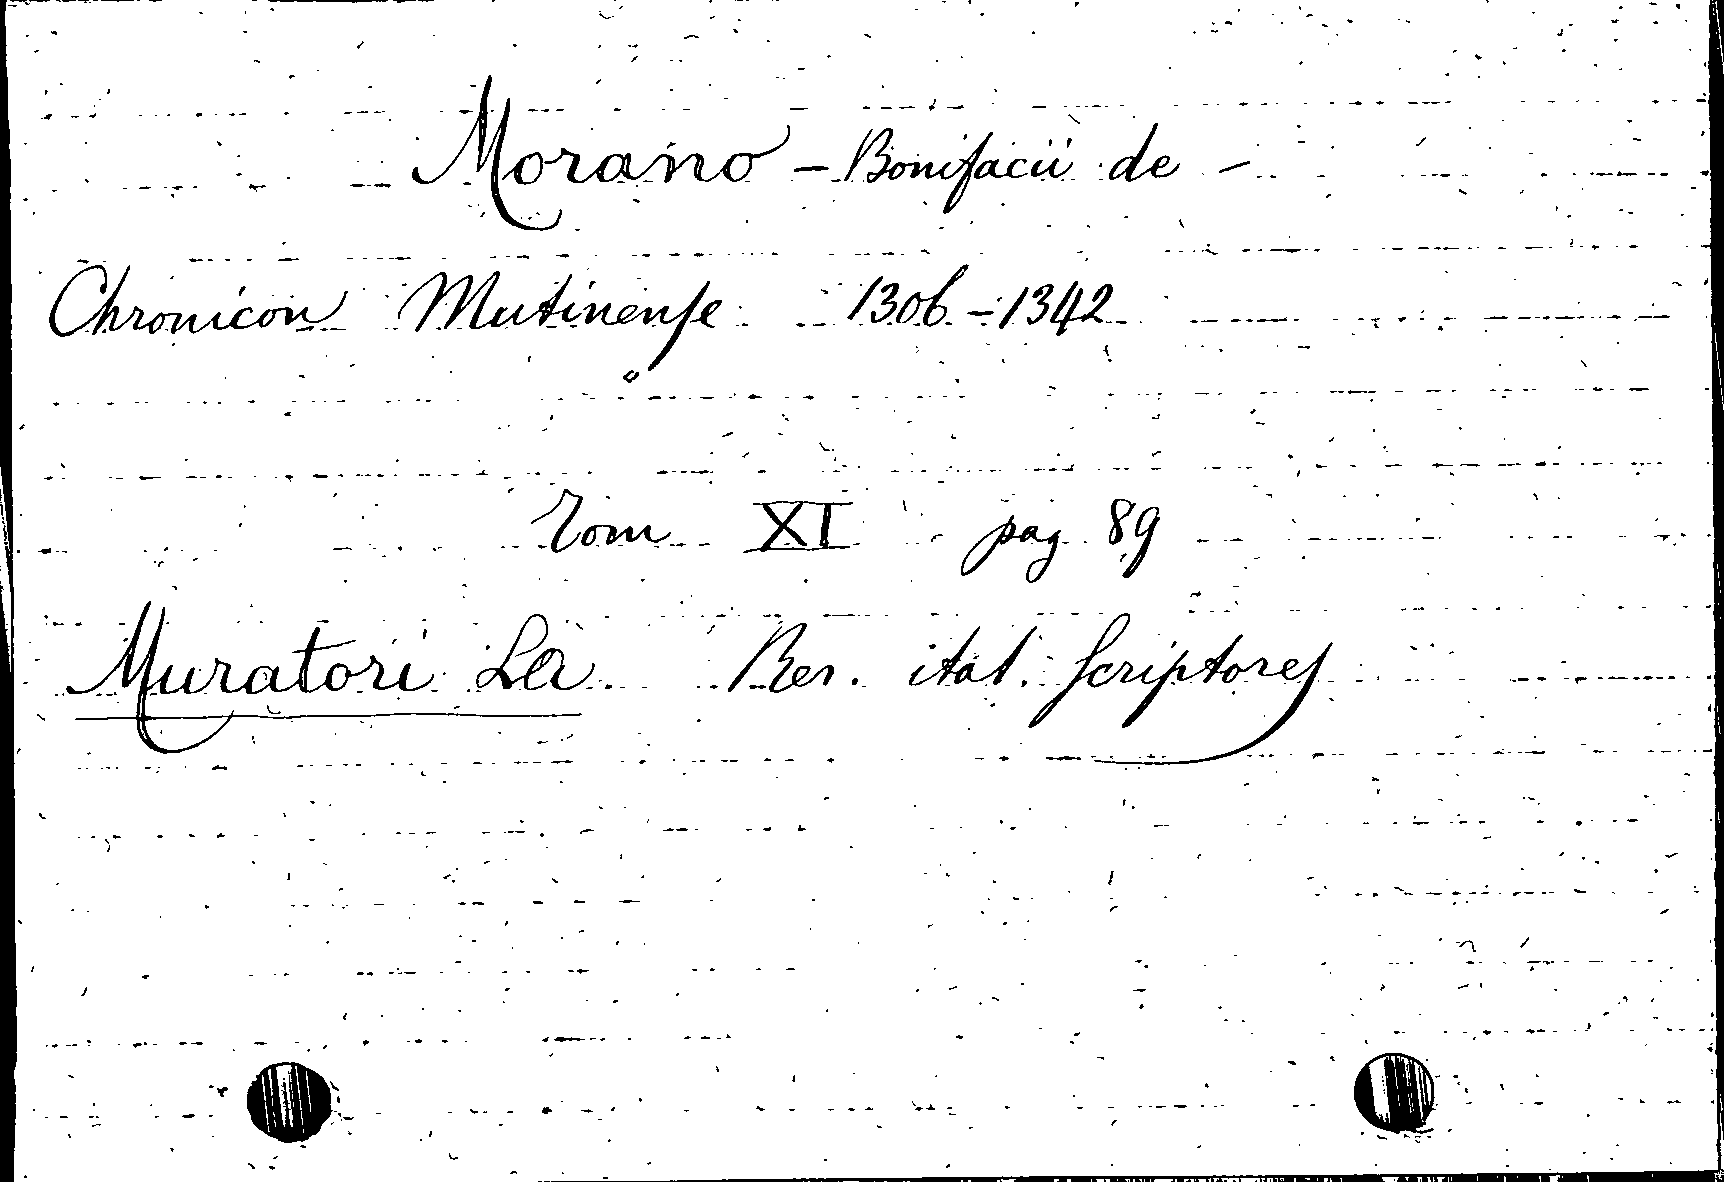 Morano - Bonifacii de -
Chronicon Mutinense 1306 - 1342
Tom XI pag 89
Muratori La Rer. ital. Scriptores